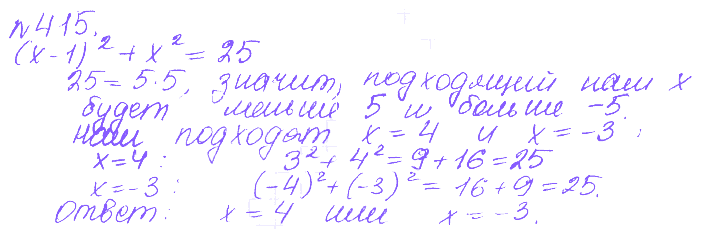 №415.
(x-1)² + x² = 25
25 = 5·5, значит, подходящий нам x
будет меньше 5 и больше -5.
Нам подходят x = 4 и x = -3:
x = 4: 3² + 4² = 9 + 16 = 25
x = -3: (-4)² + (-3)² = 16 + 9 = 25.
Ответ: x = 4 или x = -3.